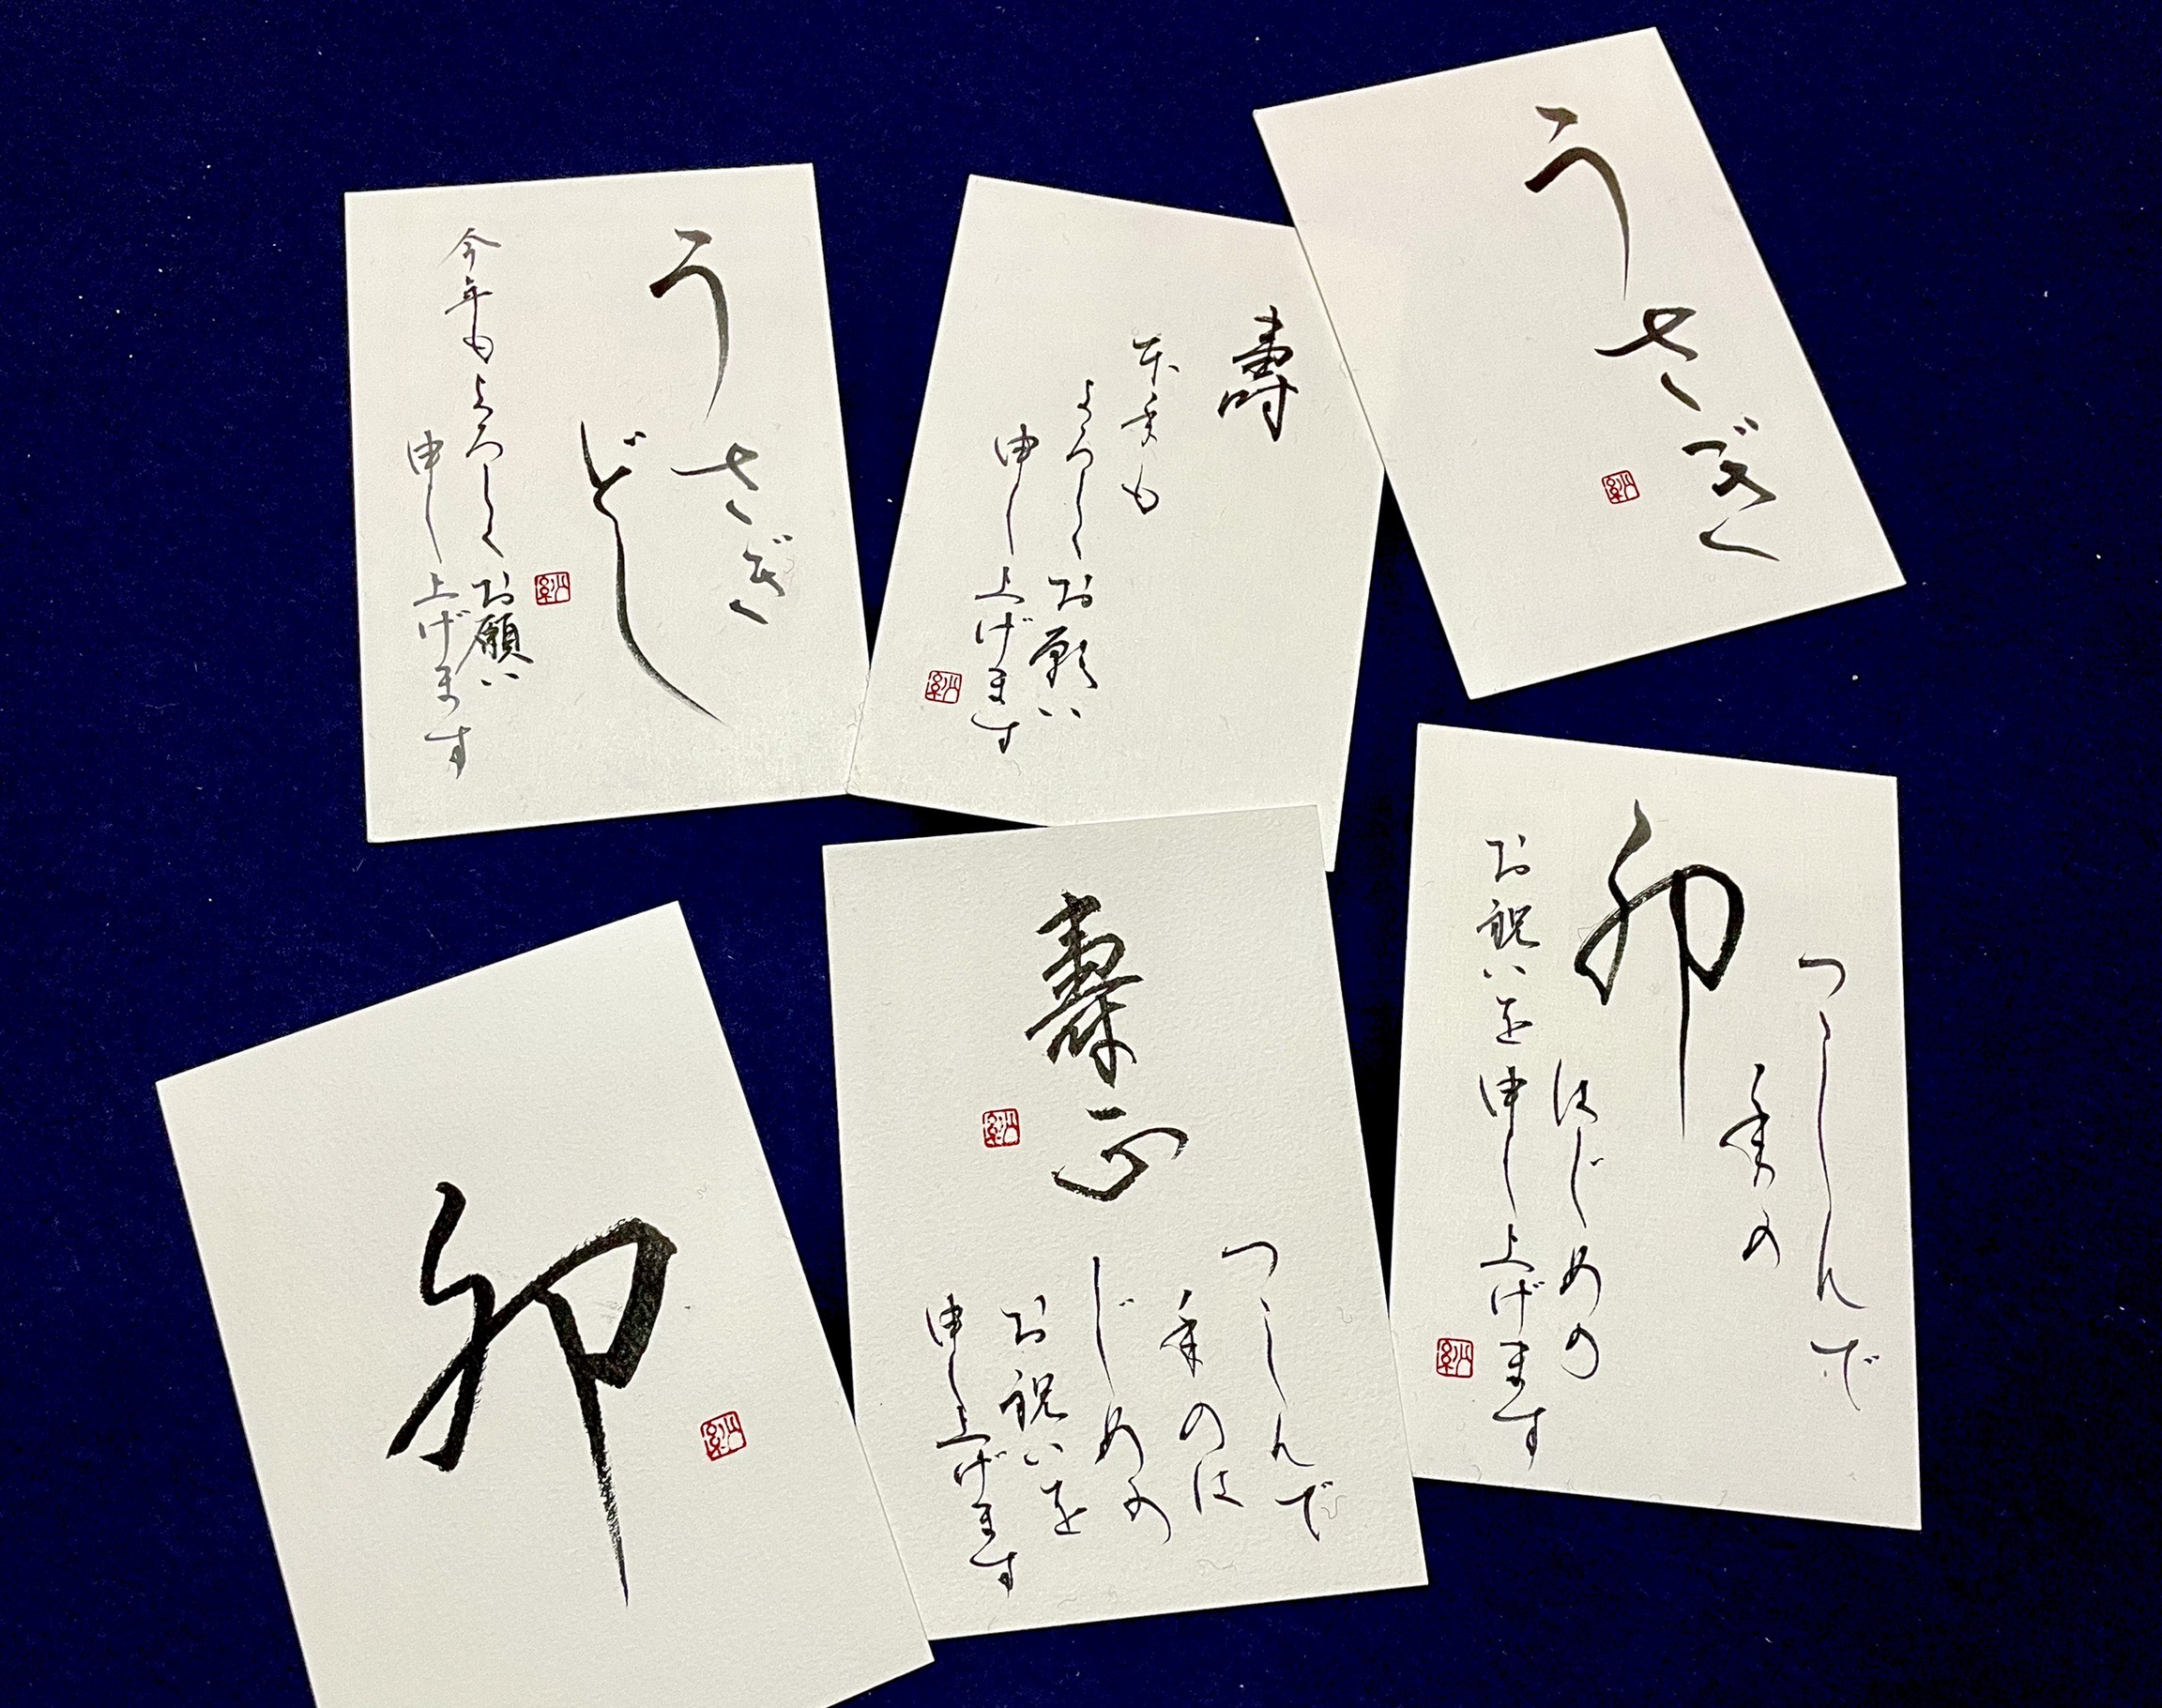 うさぎ
どし
今年も
よろしくお願い
申し上げます
壽
本年も
よろしくお願い
申し上げます
うさぎ
卯
壽正
つつしんで
年のは
じめの
お祝いを
申し上げます
卯
つつしんで
年の
はじめの
お祝いを申し上げます